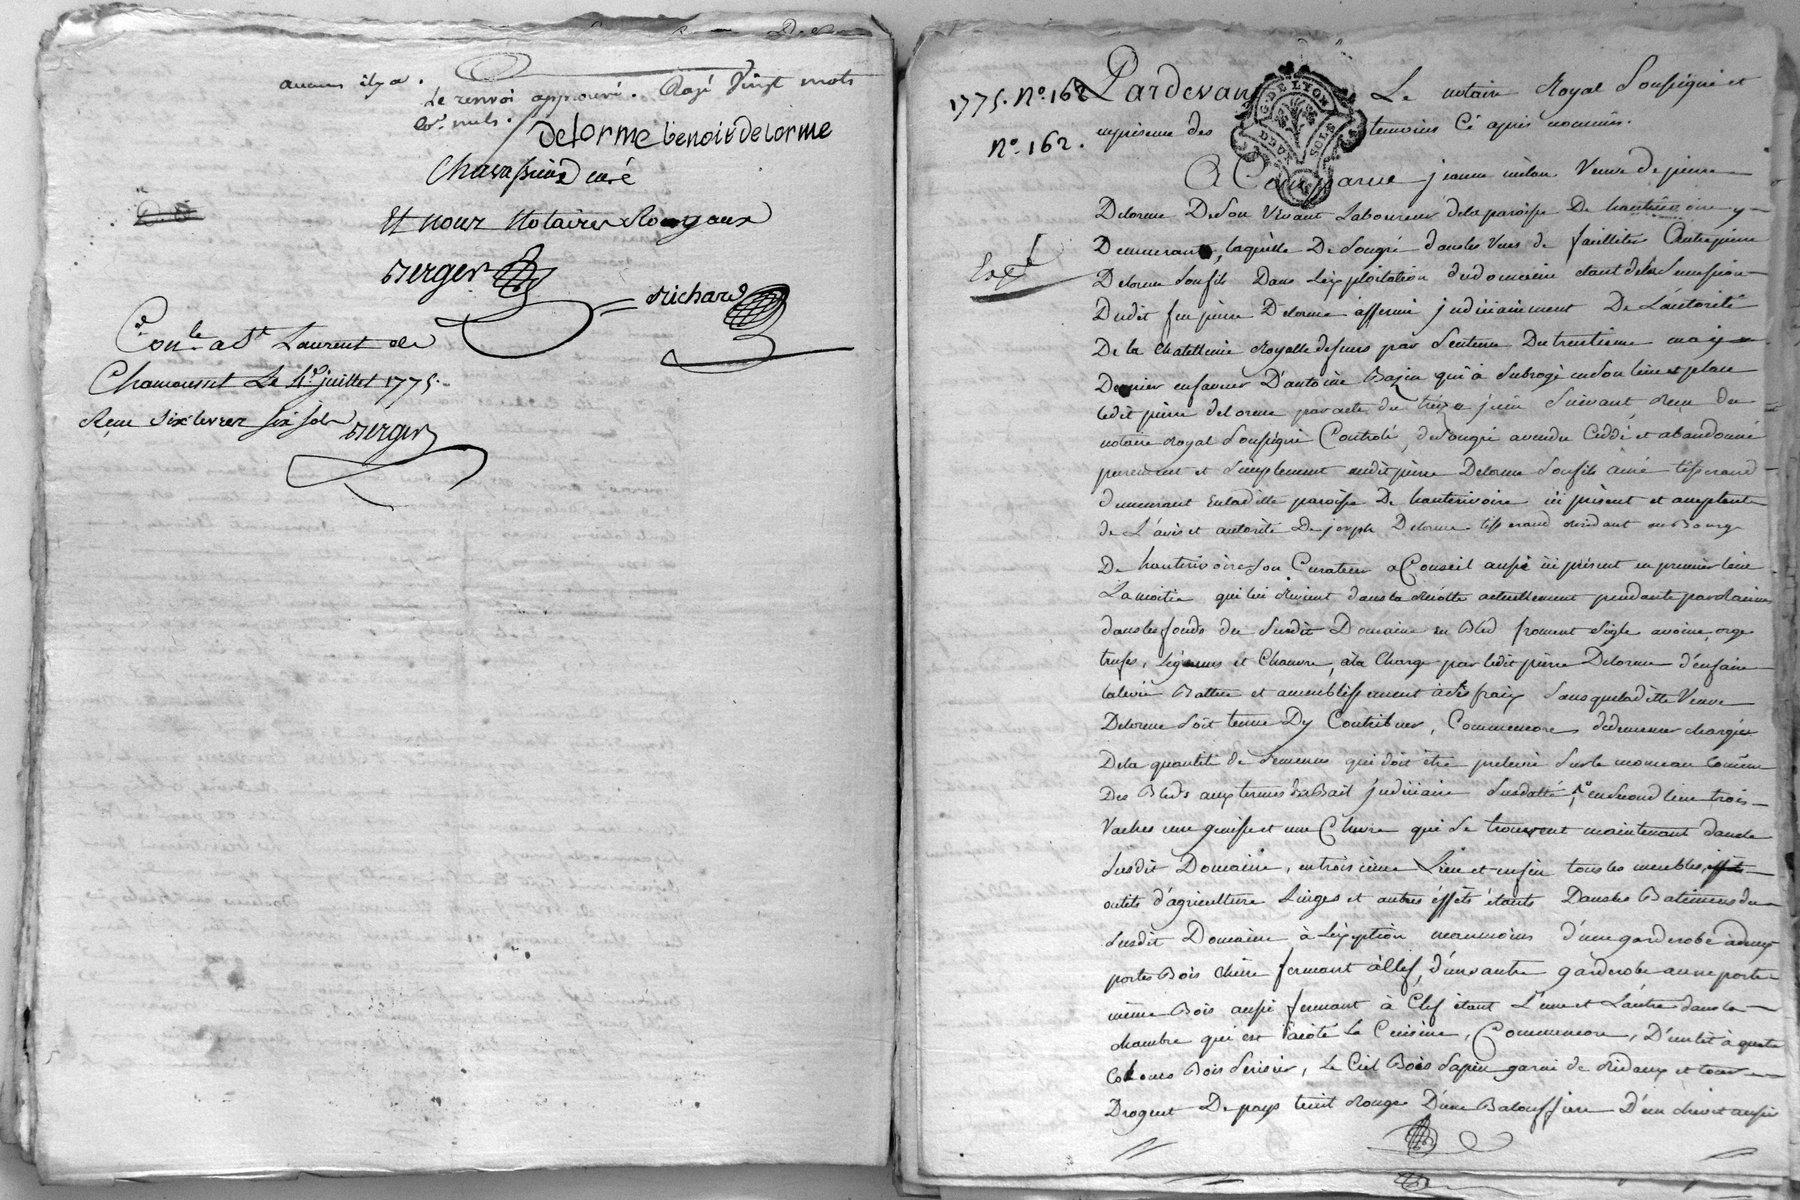 aucuns il y a.
Le renvoi approuvé. Rayé Vingt mots
nuls.
Delorme benoit delorme
curé
Et nous Notaires Royaux
Berger Richard
Con.le a St Laurent de
Chamousset Le 4e juillet 1775.
Reçu six livres six sols Berger
1775. No. 162
No. 162.
Extt
G. DE LYON
DEUX SOLS
Pardevant Le notaire Royal Soussigné et
en presence des temoins Ci après nommés.
A Comparue jeanne Veuve de pierre
Delorme De Son Vivant Laboureur de la paroisse De hauterivoire y
Demeurant, laquelle De Son gré dans les Vues de faciliter Audit pierre
Delorme Son fils Dans L'exploitation du domaine étant de la Succession
Dudit feu pierre Delorme affermé judiciairement De L'autorité
De la Chatellenie Royalle de par Sentence Du trentieme may
Dernier en faveur D'antoine Bazin qui a Subrogé en Son lieu et place
ledit pierre delorme par acte du treize juin Suivant Reçu du
notaire Royal Soussigné Controlé, de Son gré a vendu Ceddé et abandonné
purement et Simplement audit pierre Delorme Son fils ainé tisserand
demeurant en la ditte paroisse De hauterivoire ici présent et acceptant
de L'avis et autorité De joseph Delorme tisserand Résidant au Bourg
De hauterivoire Son Curateur a Conseil aussi ici présent en premier lieu
La moitié qui lui Revient dans la Récolte actuellement pendante par Racines
dans les fonds du Susdit Domaine en Bled froment Seigle avoine, orge
trufes, Légumes et Chanvre, à la Charge par ledit pierre Delorme d'en faire
la levée Battue et ameublissement à Ses fraix Sans que la ditte Veuve
Delorme Soit tenue D'y Contribuer, Comme encore de demeurer chargée
De la quantité de Semence qui doit être prelevée Sur le monceau Commun
Des Bleds aux termes du Bail judiciaire Susdatté, en Second lieu trois
Vaches une genisse et une Chevre qui Se trouvent maintenant dans le
Susdit Domaine, en troisieme Lieu et enfin tous les meubles,
outils d'agriculture Linges et autres éffèts étants Dans les Batiments du
Susdit Domaine à L'éxeption neanmoins d'une garderobe à deux
portes Bois Chêne fermant à Clef, d'une autre garderobe a une porte
même Bois aussi fermant à Clef étant L'une et L'autre dans la
chambre qui est à coté La Cuisine, Comme encore, D'un lit à quatre
Colonnes Bois Serisier, Le Ciel Bois Sapin garni de Rideaux et tour
Droguet De pays teint Rouge D'une Balouffiere D'un chevet aussi